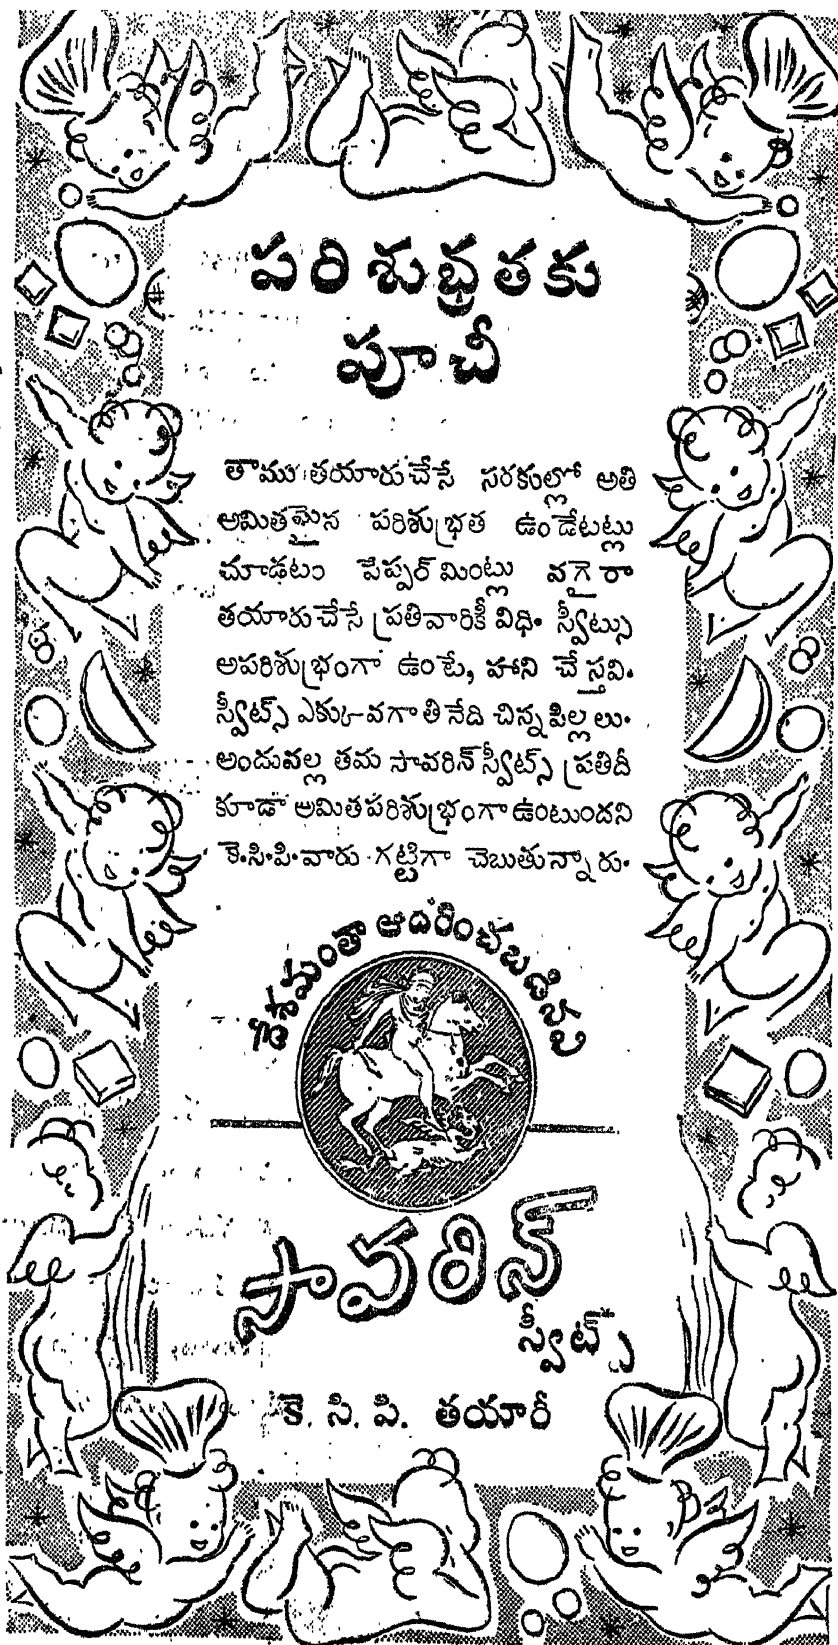 పరిశుభ్రతకు
పూచీ
తాము తయారుచేసే సరకుల్లో అతి
అమితమైన పరిశుభ్రత ఉండేటట్లు
చూడటం పేప్పర్ మింట్లు వగైరా
తయారుచేసే ప్రతివారికీ విధి. స్వీట్సు
అపరిశుభ్రంగా ఉంటే, హాని చేస్తవి.
స్వీట్స్ ఎక్కువగా తినేది చిన్నపిల్లలు.
అందువల్ల తమ సావరిన్ స్వీట్స్ ప్రతిదీ
కూడా అమితపరిశుభ్రంగా ఉంటుందని
కె.సి.పి.వారు గట్టిగా చెబుతున్నారు.
దేశమంతా ఆదరించబడినవి
సావరిన్
స్వీట్స్
కె. సి. పి. తయారీ